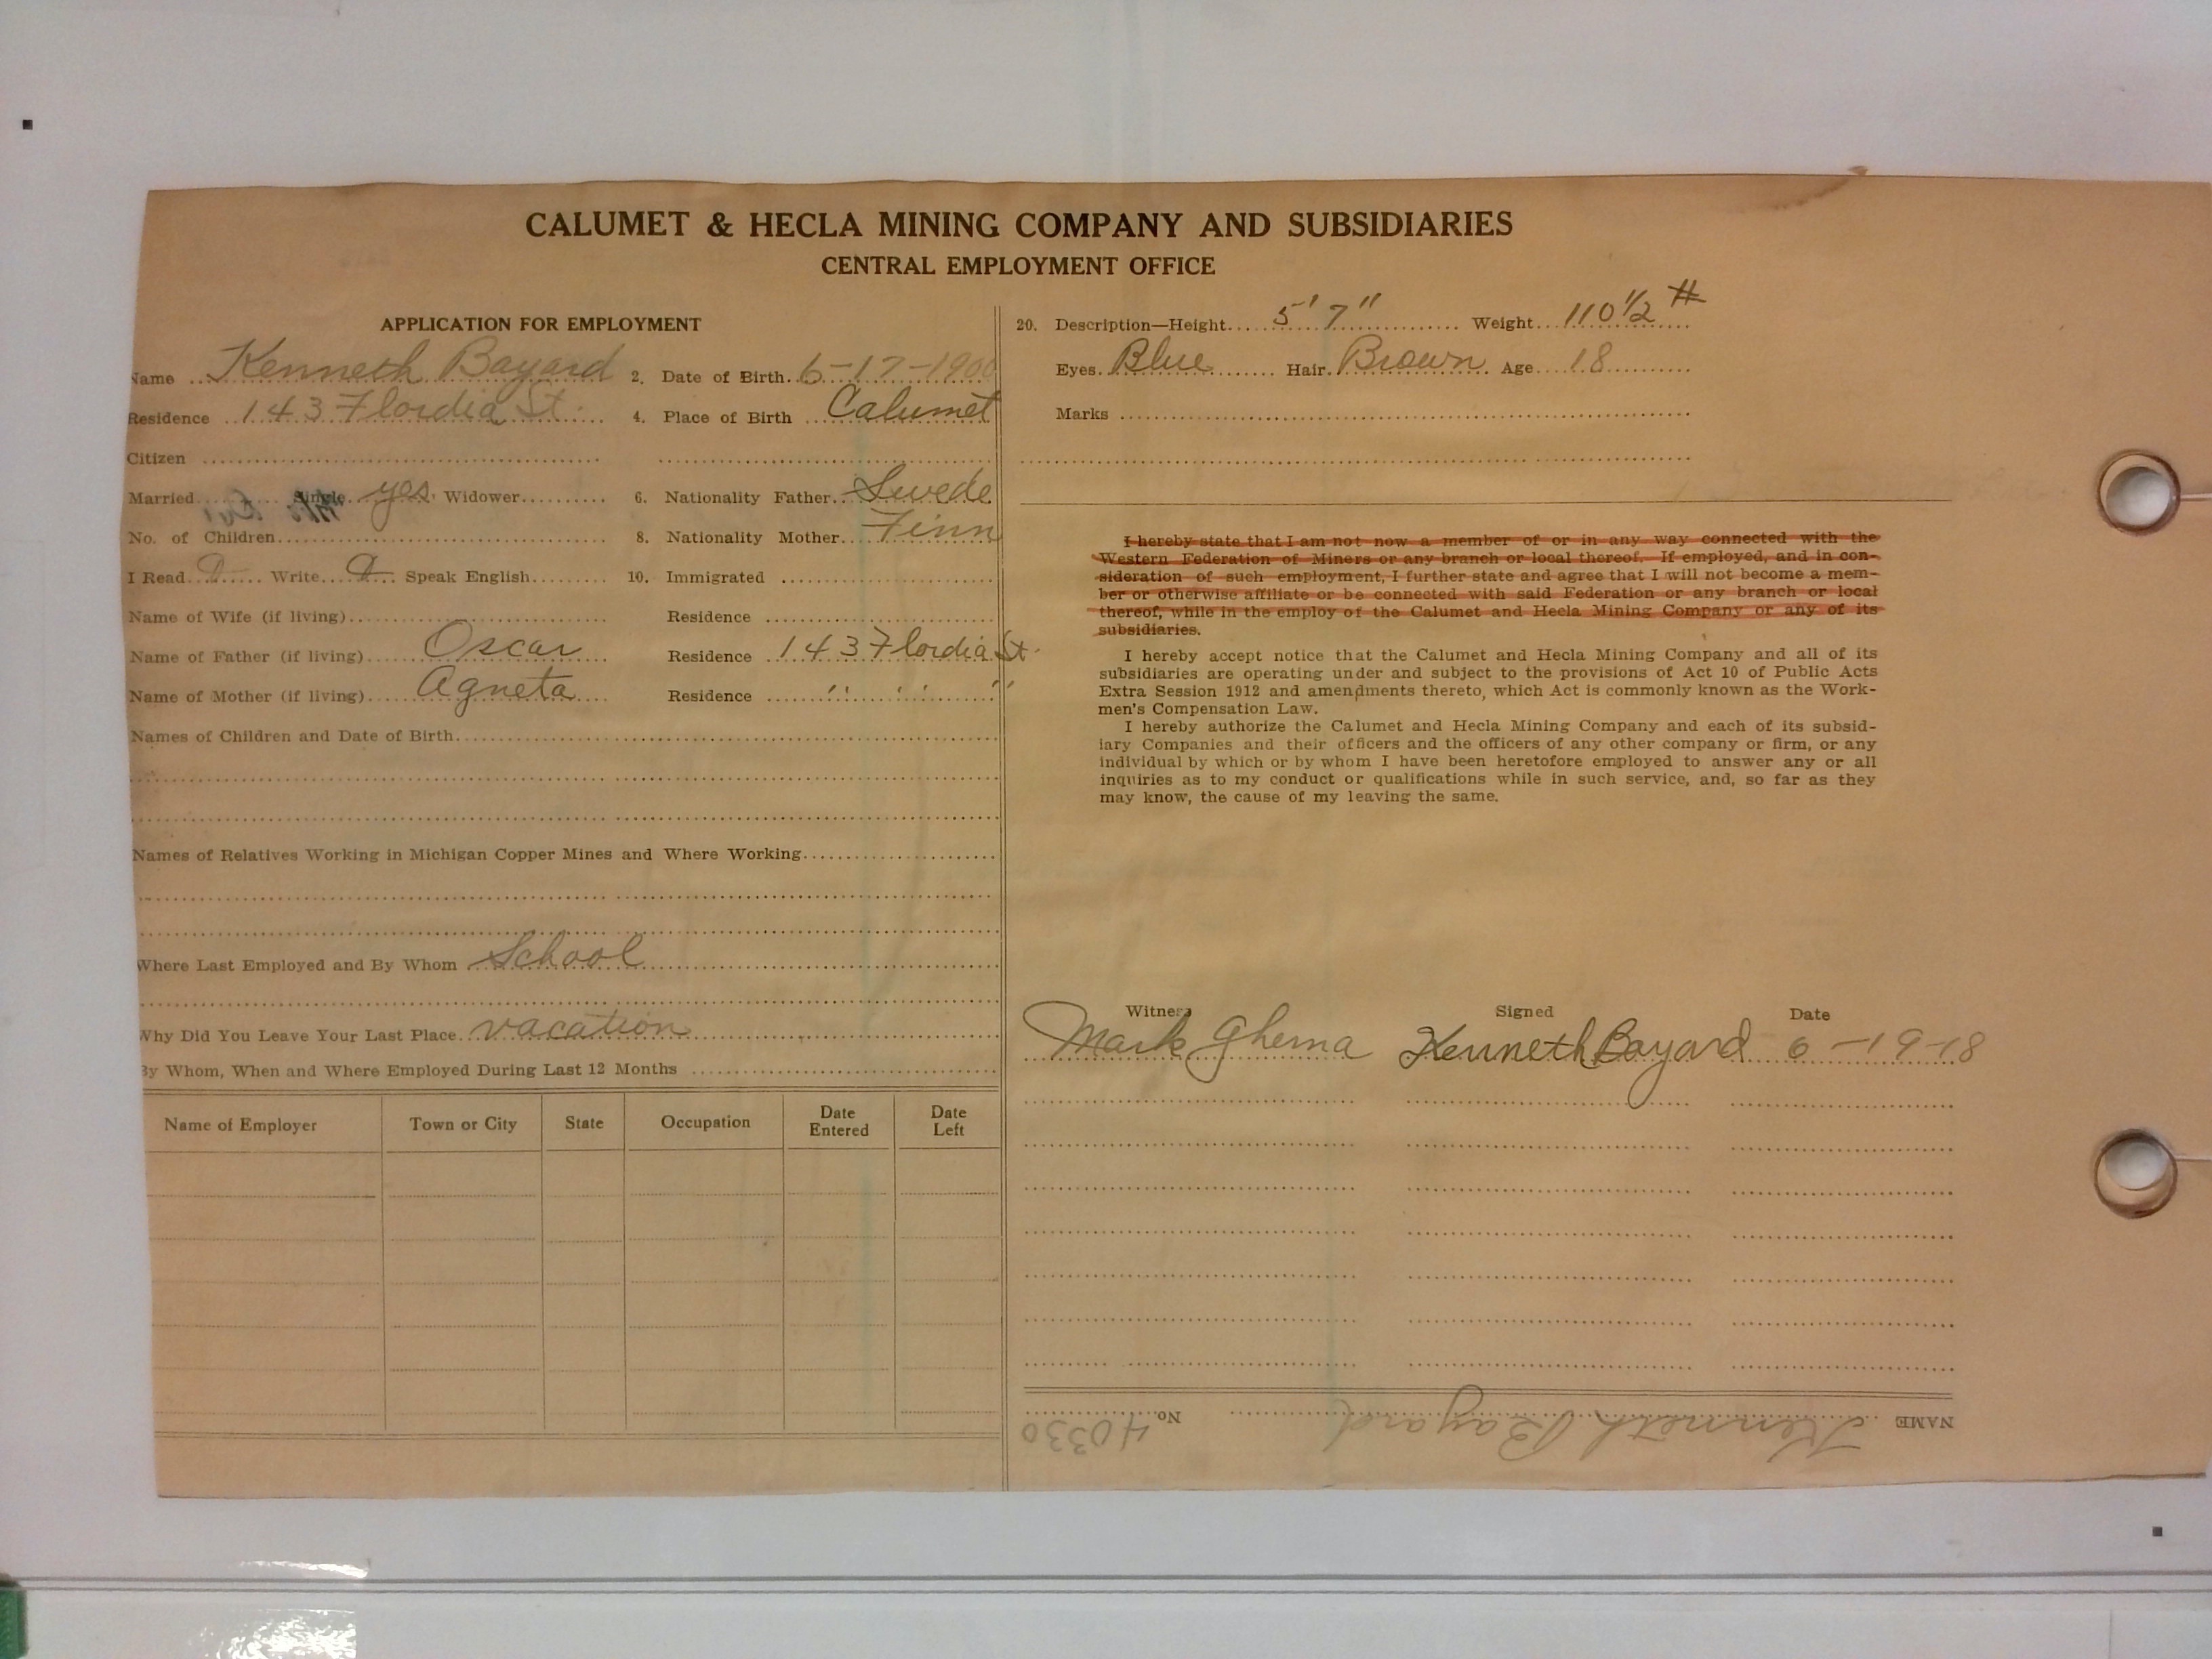 CALUMET & HECLA MINING COMPANY AND SUBSIDIARIES
CENTRAL EMPLOYMENT OFFICE
APPLICATION FOR EMPLOYMENT
Name Kenneth Bayard 2. Date of Birth 6-17-1900
Residence 143 Flordia St. 4. Place of Birth Calumet
Citizen
Married Single yes Widower 6. Nationality Father Swede
No. of Children 8. Nationality Mother Finn
I Read Write Speak English 10. Immigrated
Name of Wife (if living) Residence
Name of Father (if living) Oscar Residence 143 Flordia St.
Name of Mother (if living) Agneta Residence " " "
Names of Children and Date of Birth
Names of Relatives Working in Michigan Copper Mines and Where Working
Where Last Employed and By Whom School
Why Did You Leave Your Last Place vacation
By Whom, When and Where Employed During Last 12 Months
Name of Employer Town or City State Occupation Date Entered Date Left
20. Description—Height 5' 7" Weight 110 1/2 #
Eyes Blue Hair Brown Age 18
Marks
I hereby state that I am not now a member of or in any way connected with the
Western Federation of Miners or any branch or local thereof. If employed, and in con-
sideration of such employment, I further state and agree that I will not become a mem-
ber or otherwise affiliate or be connected with said Federation or any branch or local
thereof, while in the employ of the Calumet and Hecla Mining Company or any of its
subsidiaries.
I hereby accept notice that the Calumet and Hecla Mining Company and all of its
subsidiaries are operating under and subject to the provisions of Act 10 of Public Acts
Extra Session 1912 and amendments thereto, which Act is commonly known as the Work-
men's Compensation Law.
I hereby authorize the Calumet and Hecla Mining Company and each of its subsid-
iary Companies and their officers and the officers of any other company or firm, or any
individual by which or by whom I have been heretofore employed to answer any or all
inquiries as to my conduct or qualifications while in such service, and, so far as they
may know, the cause of my leaving the same.
Witness Signed Date
Mark Ghema Kenneth Bayard 6-19-18
NAME Kenneth Bayard No. 40330